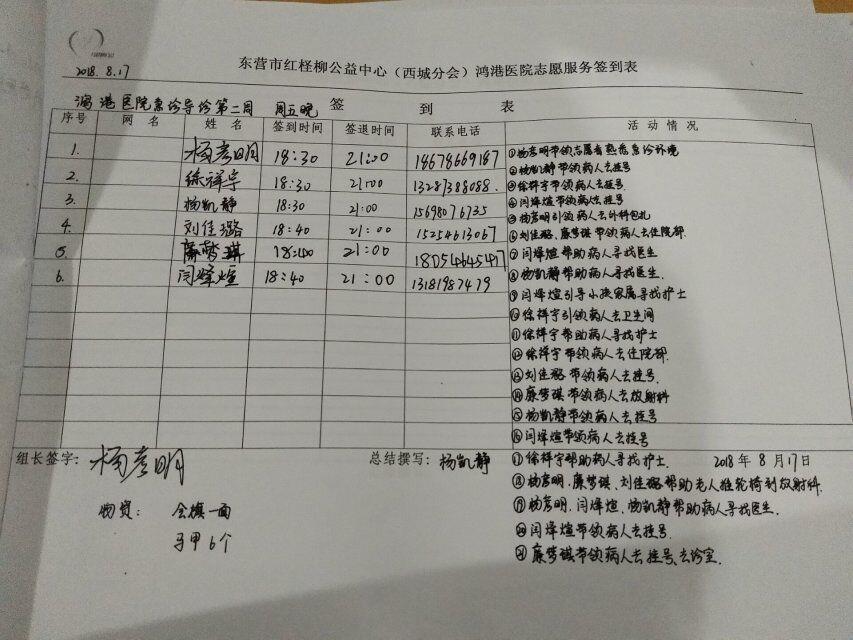 2018.8.17
东营市红柽柳公益中心（西城分会）鸿港医院志愿服务签到表
鸿港医院急诊导诊第二周 周五晚 签到表
序号 网名 姓名 签到时间 签退时间 联系电话 活动情况
1. 杨彦明 18:30 21:00 18678669187
2. 徐祥宇 18:30 21:00 13287388088.
3. 杨凯静 18:30 21:00 15698076735
4. 刘佳璐 18:40 21:00 15254613067
5. 廉梦琪 18:40 21:00 18054645417
6. 闫烽煊 18:40 21:00 13181987479
①杨彦明带领志愿者熟悉急诊环境
②杨凯静带领病人去挂号
③徐祥宇带领病人去挂号.
④闫烽煊带领病人去挂号
⑤杨彦明引领病人去外科包扎
⑥刘佳璐、廉梦琪带领病人去住院部.
⑦闫烽煊帮助病人寻找医生
⑧杨凯静帮助病人寻找医生.
⑨闫烽煊引导小孩家属寻找护士
⑩徐祥宇引领病人去卫生间
⑪徐祥宇帮助病人寻找护士
⑫徐祥宇带领病人去住院部.
⑬刘佳璐带领病人去挂号.
⑭廉梦琪带领病人去放射科
⑮杨凯静带领病人去挂号
⑯闫烽煊带领病人去挂号
组长签字：杨彦明 总结撰写：杨凯静 ⑰徐祥宇帮助病人寻找护士. 2018年8月17日
⑱杨彦明、廉梦琪、刘佳璐帮助老人推轮椅到放射科.
物资：会旗一面 ⑲杨彦明、闫烽煊、杨凯静帮助病人寻找医生.
马甲6个 ⑳闫烽煊带领病人去挂号.
㉑廉梦琪带领病人去挂号、去诊室.